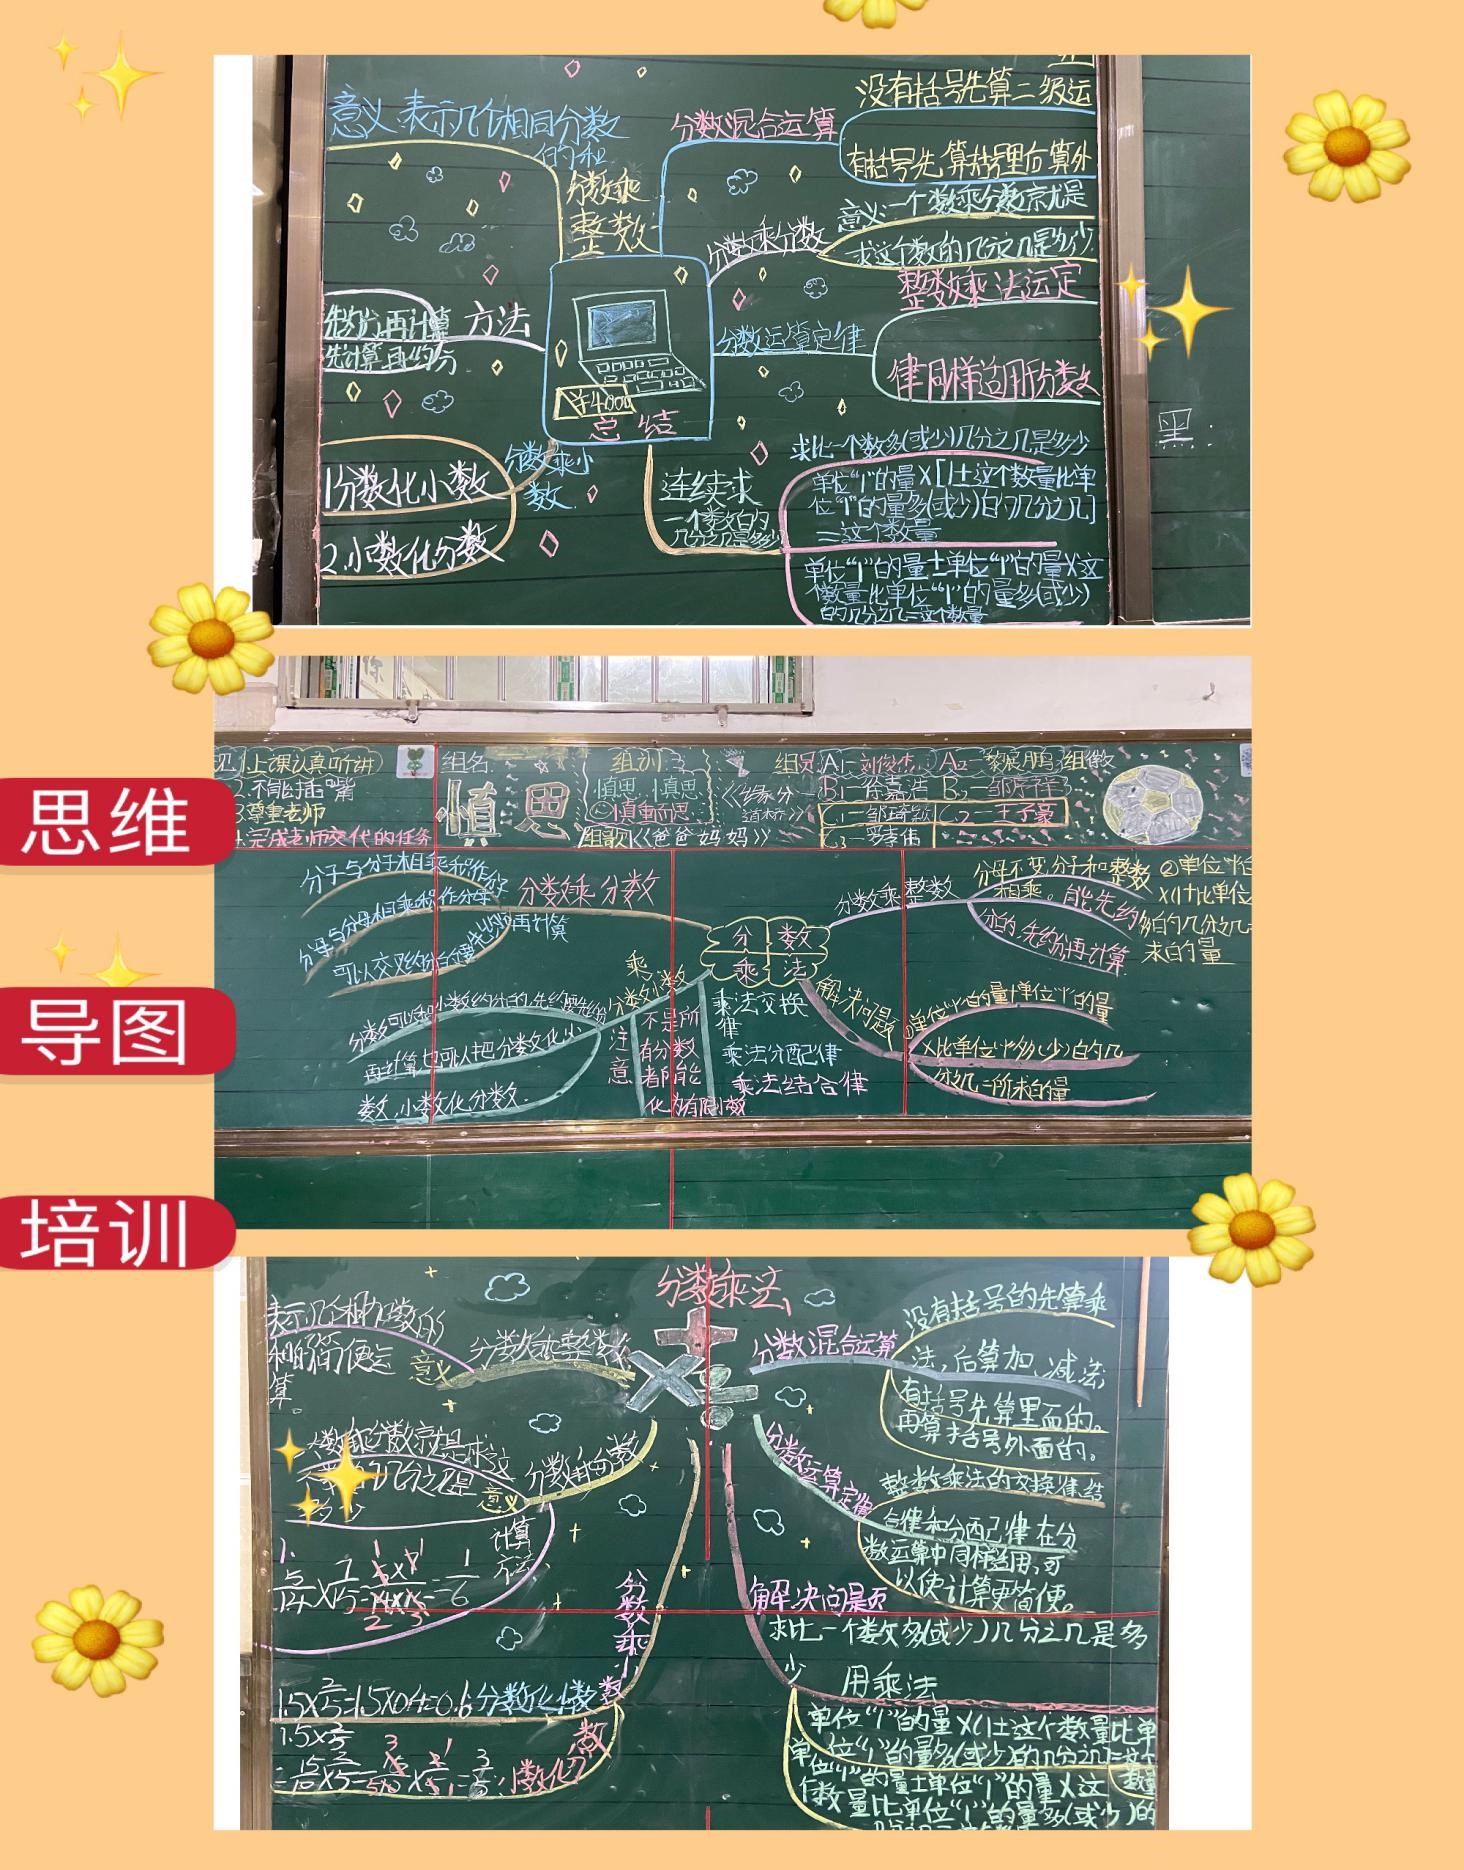 思维
导图
培训
意义 表示几个相同分数
的和
分数乘
整数
方法
先约分再计算
先计算再约分
分数乘小
数
1分数化小数
2.小数化分数
¥4000
总结
分数混合运算
没有括号先算二级运
有括号先算括号里后算外
分数乘分数
意义:一个数乘分数就是
求这个数的几分之几是多少
分数运算定律
整数乘法运定
律同样适用于分数
连续求
一个数的
几分之几是多少
求比一个数多(或少)几分之几是多少
单位“1”的量×[1±这个数量比单
位“1”的量多(或少)的几分之几]
=这个数量
单位“1”的量±单位“1”的量×这
个数量比单位“1”的量多(或少)
的几分之几=这个数量
黑:
1上课认真听讲
2.不能插嘴
3尊重老师
4.完成老师交代的任务
组名
慎思
组训:
慎思 慎思
慎重而思
组歌《爸爸妈妈》
A1—刘俊杰
B1—徐嘉浩
C3—罗孝伟
组徽
分数乘法
分数乘分数
分子与分子相乘积作分子
分母与分母相乘积作分母
可以交叉约分的要先约分再计算
乘
分数小数
分数可以和小数约分的,先约要先约
再计算也可以把分数化小
数,小数化分数.
注意
不是所
有分数
都能
化为有限小数
乘法交换
律
乘法分配律
乘法结合律
分数乘整数
分母不变分子和整数
相乘。能先约
分的,先约分再计算
解决问题
①单位“1”的量±单位“1”的量
×比单位“1”多(少)的几
分之几=所求的量
②单位“1”的
×(1±比单位
多的几分之几=
求的量
分数乘法
分数乘整数
意义
表示几个相加数的
和的简便运
算。
分数乘分数
意义
一个数乘分数就是求这
个数的几分之几是
多少
计算
方法、
1.
5/14×7/15=1/6
分数乘小数
1.5×2/5=1.5×0.4=0.6 分数化小数
1.5×2/5
=15/10×2/5=3/5
小数化分数
分数混合运算
没有括号的先算乘
法,后算加、减法;
有括号先算里面的。
再算括号外面的。
分数运算定律
整数乘法的交换律结
合律和分配律在分
数运算中同样适用,可
以使计算更简便。
解决问题
求比一个数多(或少)几分之几是多
少
用乘法
单位“1”的量×(1±这个数量比单
位“1”的量多(或少)的几分之几)=这个
数量
单位“1”的量±单位“1”的量×这
个数量比单位“1”的量多(或少)的